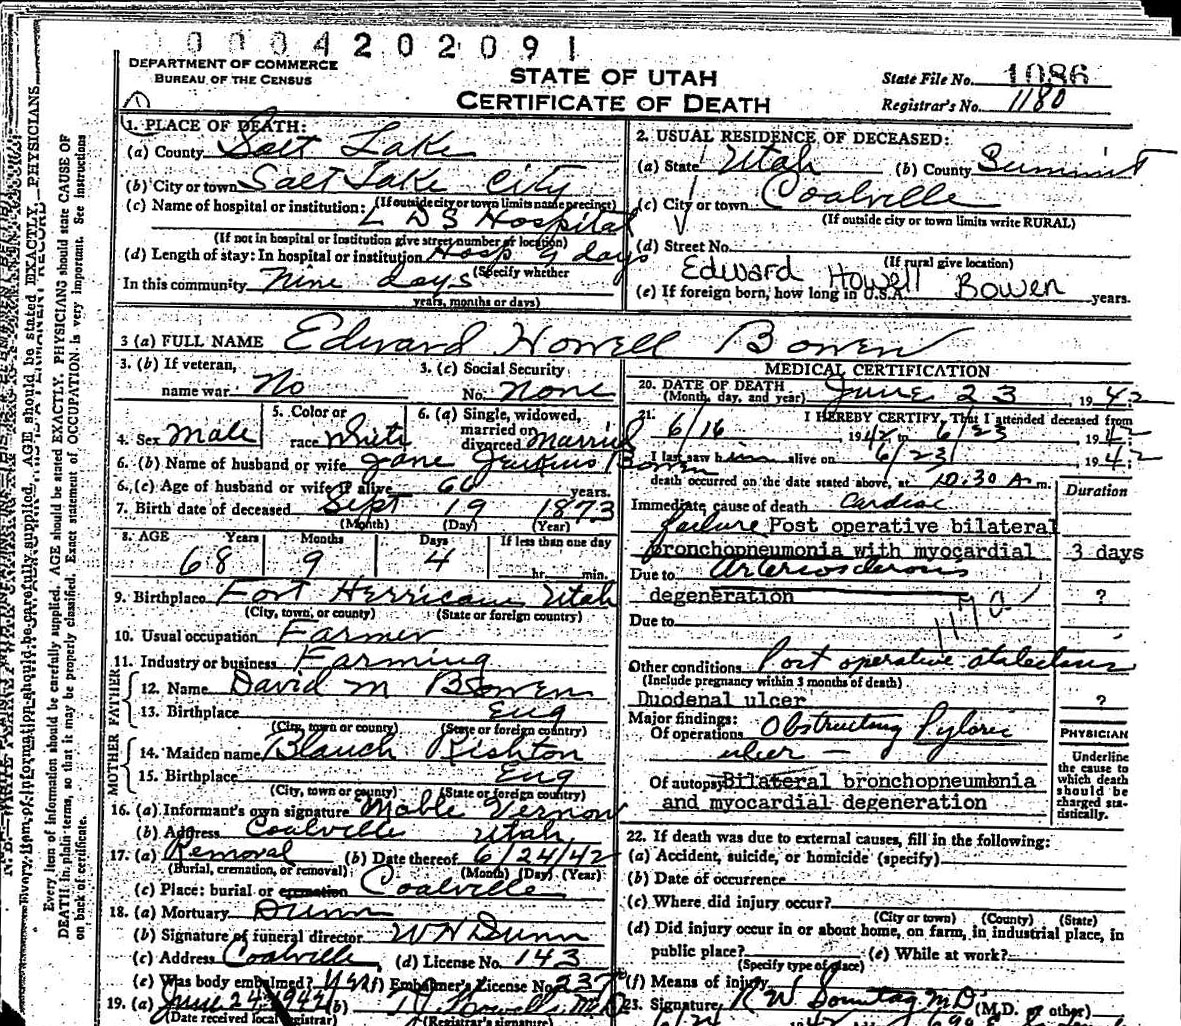 0004202091
DEPARTMENT OF COMMERCE
BUREAU OF THE CENSUS
STATE OF UTAH
CERTIFICATE OF DEATH
State File No. 1086
Registrar's No. 1180
1. PLACE OF DEATH:
(a) County Salt Lake
(b) City or town Salt Lake City
(If outside city or town limits name precinct)
(c) Name of hospital or institution: L D S Hospital
(If not in hospital or institution give street number or location)
(d) Length of stay: In hospital or institution Hosp 9 days
(Specify whether
In this community Nine days
years, months or days)
2. USUAL RESIDENCE OF DECEASED:
(a) State Utah (b) County Summit
(c) City or town Coalville
(If outside city or town limits write RURAL)
(d) Street No.
(If rural give location)
Edward Howell Bowen
(e) If foreign born, how long in U.S.A. years.
3 (a) FULL NAME Edward Howell Bowen
3. (b) If veteran, name war No
3. (c) Social Security No. None
4. Sex Male
5. Color or race White
6. (a) Single, widowed, married or divorced Married
6. (b) Name of husband or wife Jane Jenkins Bowen
6. (c) Age of husband or wife if alive 60 years.
7. Birth date of deceased Sept 19 1873
(Month) (Day) (Year)
8. AGE Years Months Days If less than one day
68 9 4 hr. min.
9. Birthplace Fort Herricam Utah
(City, town, or county) (State or foreign country)
10. Usual occupation Farmer
11. Industry or business Farming
FATHER
12. Name David M Bowen
13. Birthplace Eng
(City, town or county) (State or foreign country)
MOTHER
14. Maiden name Blanch Rishton
15. Birthplace Eng
(City, town or county) (State or foreign country)
16. (a) Informant's own signature Mable Vernon
(b) Address Coalville Utah
17. (a) Removal (b) Date thereof 6/24/42
(Burial, cremation, or removal) (Month) (Day) (Year)
(c) Place: burial or cremation Coalville
18. (a) Mortuary Dunn
(b) Signature of funeral director W N Dunn
(c) Address Coalville (d) License No. 143
(e) Was body embalmed? Yes (f) Embalmer's License No. 237
19. (a) June 24 1942 (b)
(Date received local registrar) (Registrar's signature)
MEDICAL CERTIFICATION
20. DATE OF DEATH June 23, 1942
(Month, day, and year)
21. I HEREBY CERTIFY, That I attended deceased from
6/16, 1942, to 6/23, 1942
I last saw him alive on 6/23, 1942
death occurred on the date stated above, at 10:30 A m.
Duration
Immediate cause of death Cardiac
failure Post operative bilateral
bronchopneumonia with myocardial 3 days
Due to Arteriosclerosis
degeneration ?
Due to
Other conditions Post operative atelectasis
(Include pregnancy within 3 months of death)
Duodenal ulcer ?
Major findings:
Of operations Obstructing Pyloric
ulcer –
Of autopsy Bilateral bronchopneumonia
and myocardial degeneration
PHYSICIAN
Underline the cause to which death should be charged statistically.
22. If death was due to external causes, fill in the following:
(a) Accident, suicide, or homicide (specify)
(b) Date of occurrence
(c) Where did injury occur?
(City or town) (County) (State)
(d) Did injury occur in or about home, on farm, in industrial place, in
public place? (e) While at work?
(Specify type of place)
(f) Means of injury
23. Signature R W Sonntag M.D. (M.D. or other)
Every item of information should be carefully supplied. AGE should be stated EXACTLY. PHYSICIANS should state CAUSE OF
DEATH in plain terms, so that it may be properly classified. Exact statement of OCCUPATION is very important. See instructions
on back of certificate.